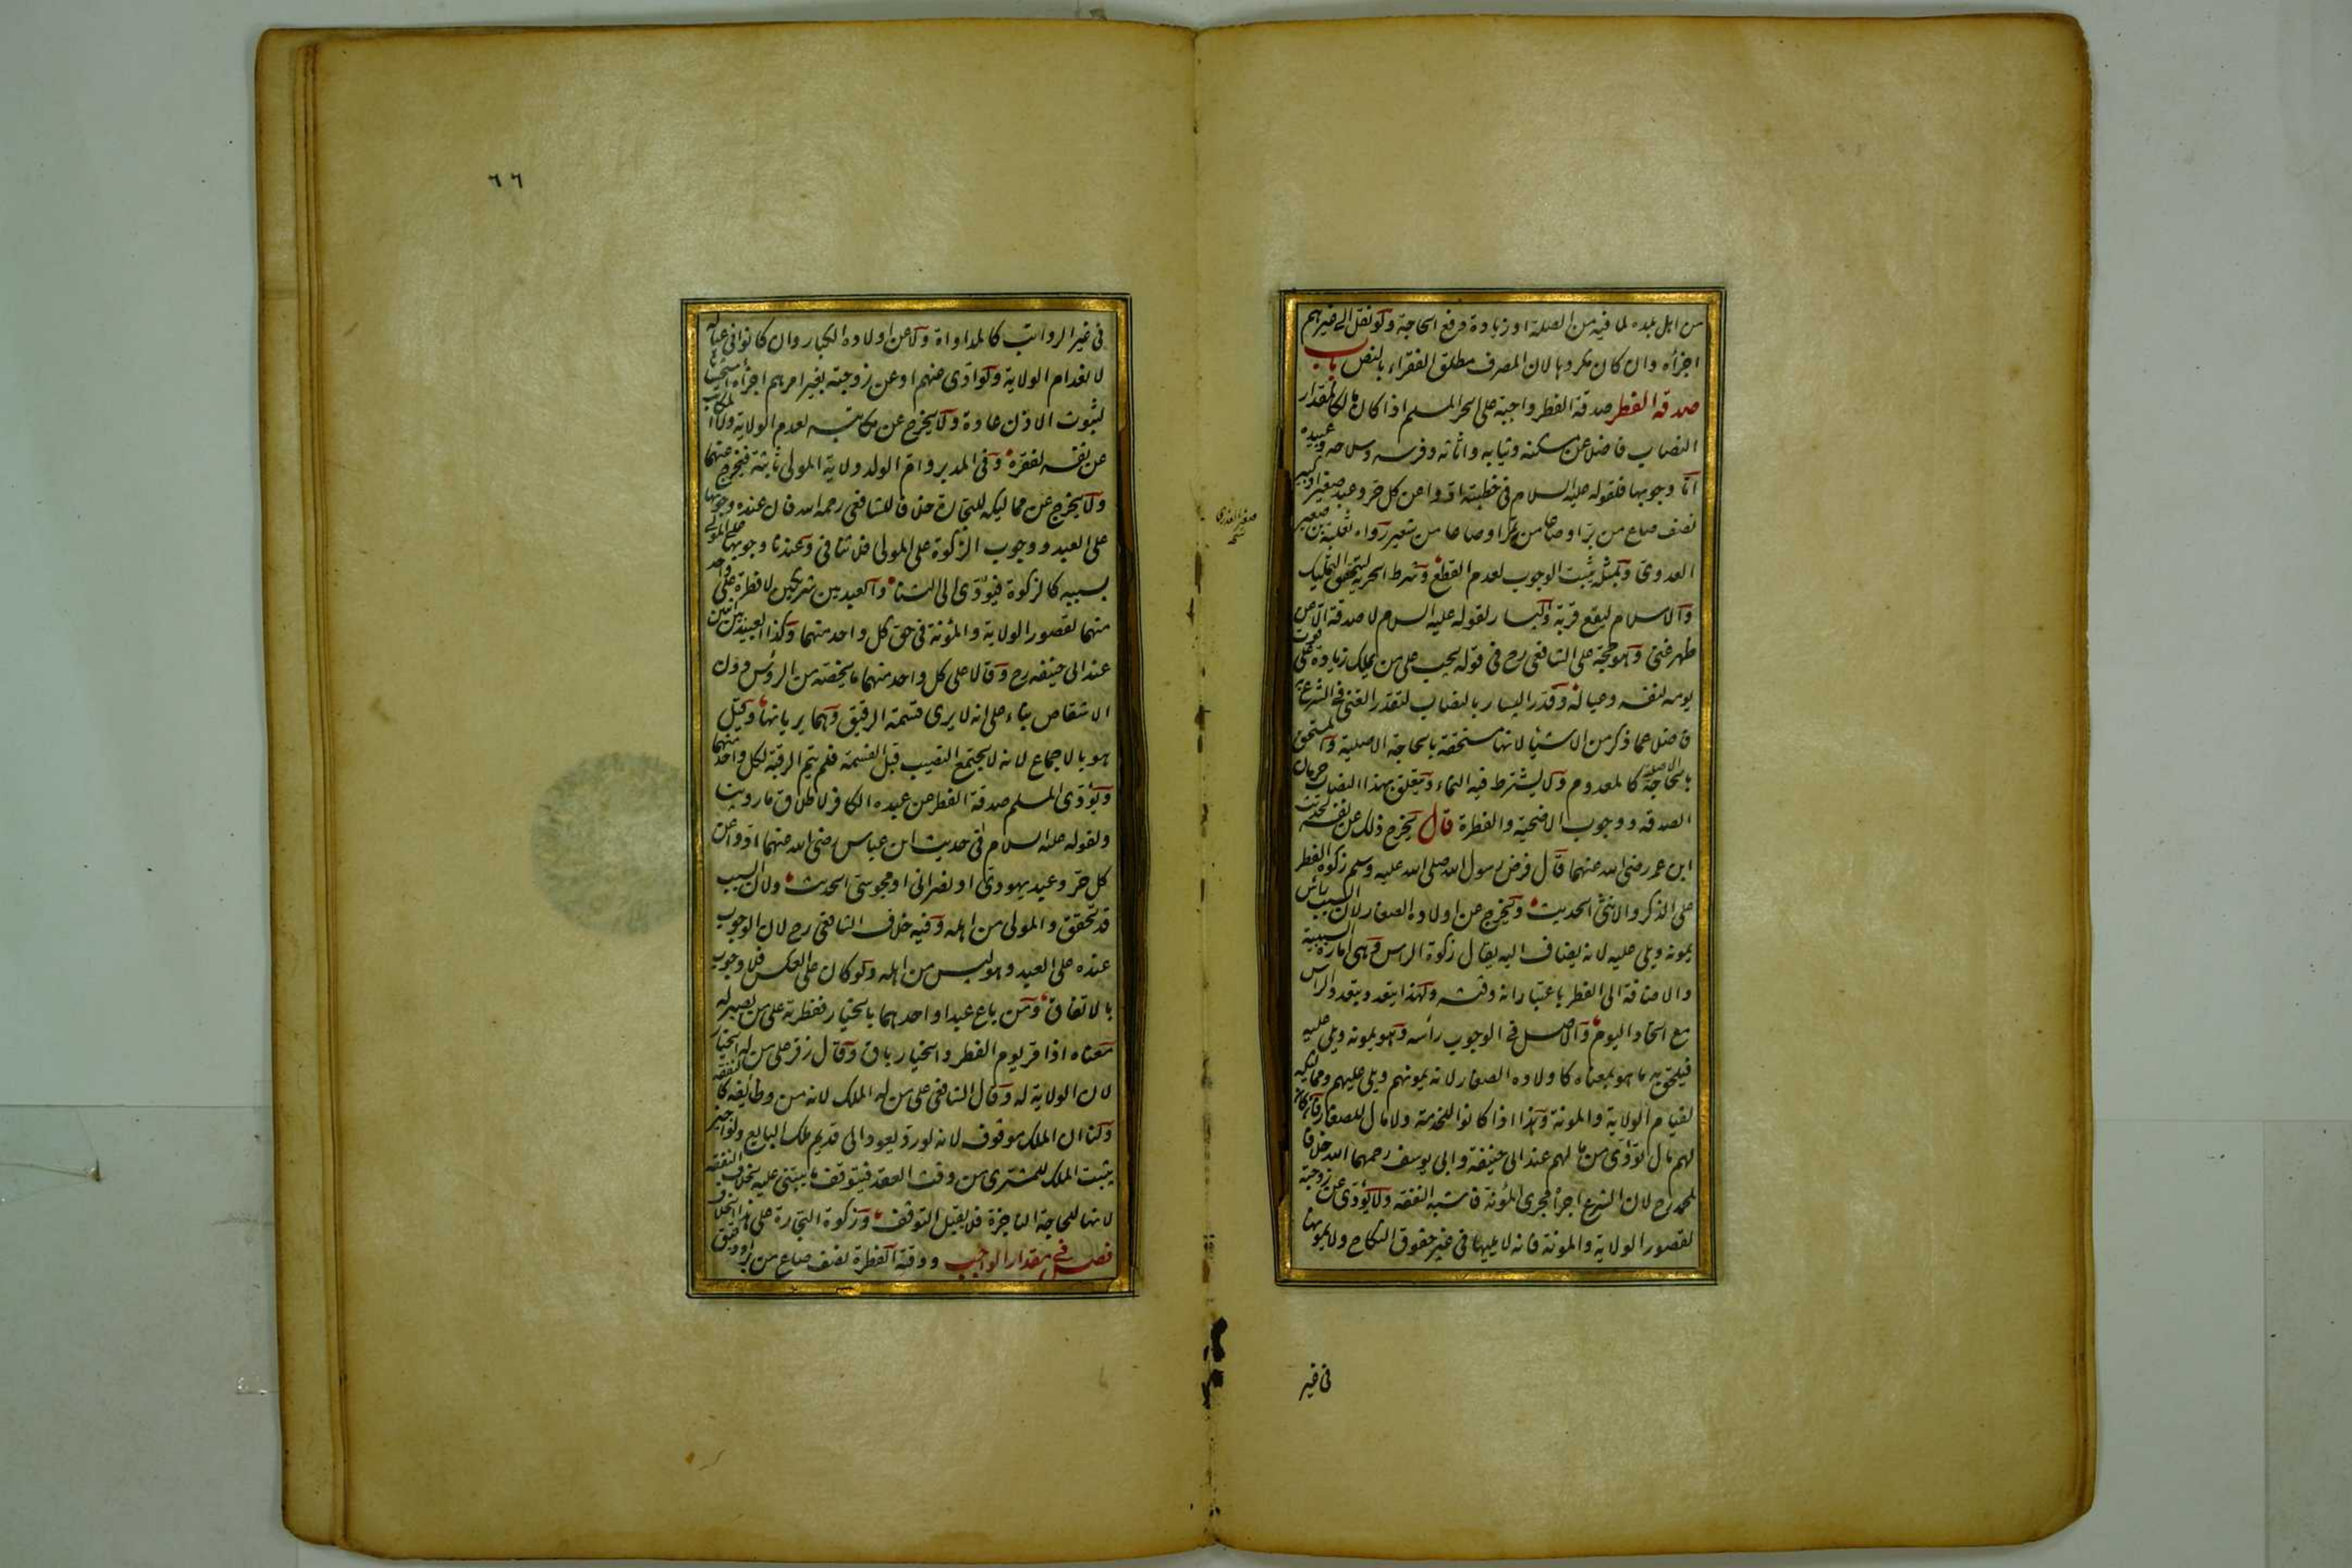 من اهل بلده لما فيه من الصلة او زيادة دفع الحاجة ولو نقل الى غيرهم
اجزأه وان كان مكروها لان المصرف مطلق الفقراء بالنص باب
صدقة الفطر صدقة الفطر واجبة على الحر المسلم اذا كان مالكا لمقدار
النصاب فاضلا عن مسكنه وثيابه واثاثه وفرسه وسلاحه وعبيده
اما وجوبها فلقوله عليه السلام فى خطبته ادوا عن كل حر وعبد صغير او كبير
نصف صاع من بر او صاعا من تمر او صاعا من شعير رواه ثعلبة بن صعير
العدوى وبمثله يثبت الوجوب لعدم القطع وشرط الحرية ليتحقق التمليك
والاسلام ليقع قربة واليسار لقوله عليه السلام لا صدقة الا عن
ظهر غنى وهو حجة على الشافعى رح فى قوله يجب على من يملك زيادة على قوت
يومه لنفسه وعياله وقدر اليسار بالنصاب لتقدر الغنى فى الشرع به
فاضلا عما ذكر من الاشياء لانها مستحقة بالحاجة الاصلية والمستحق
بالحاجة الاصلية كالمعدوم ولا يشترط فيه النماء ويتعلق بهذا النصاب حرمان
الصدقة ووجوب الاضحية والفطرة قال يخرج ذلك عن نفسه لحديث
ابن عمر رضى الله عنهما قال فرض رسول الله صلى الله عليه وسلم زكوة الفطر
على الذكر والانثى الحديث ويخرج عن اولاده الصغار لان السبب رأس
يمونه ويلى عليه لانه يضاف اليه يقال زكوة الراس وهى امارة السببية
والاضافة الى الفطر باعتبار انه وقته ولهذا يتعدد بتعدد الراس
مع اتحاد اليوم والاصل فى الوجوب رأسه وهو يمونه ويلى عليه
فيلحق به ما هو بمعناه كاولاده الصغار لانه يمونهم ويلى عليهم ومماليكه
لقيام الولاية والمونة وهذا اذا كانوا للخدمة ولا مال للصغار فان كان
لهم مال تؤدى من مالهم عند ابى حنيفة وابى يوسف رحمهما الله خلافا
لمحمد رح لان الشرع اجراه مجرى المؤنة فاشبه النفقة ولا يؤدى عن زوجته
لقصور الولاية والمونة فانه لا يليها فى غير حقوق النكاح ولا يمونها
فى غير
٦٦
فى غير الرواتب كالمداواة ولا عن اولاده الكبار وان كانوا فى عياله
لانعدام الولاية ولو ادى عنهم او عن زوجته بغير امرهم اجزأه استحسانا
لثبوت الاذن عادة ولا يخرج عن مكاتبه لعدم الولاية ولا المكاتب
عن نفسه لفقره وفى المدبر وام الولد ولاية المولى ثابتة فيخرج عنهما
ولا يخرج عن مماليكه للتجارة خلافا للشافعى رحمه الله فان عنده وجوبها
على العبد ووجوب الزكوة على المولى فلا تنافى وعندنا وجوبها على المولى
بسببه كالزكوة فيؤدى الى الثنا والعبد بين شريكين لا فطرة على واحد
منهما لقصور الولاية والمؤنة فى حق كل واحد منهما وكذا العبيد بين اثنين
عند ابى حنيفه رح وقالا على كل واحد منهما ما يخصه من الرؤس دون
الاشقاص بناء على انه لا يرى قسمة الرقيق وهما يريانها وقيل
هو بالاجماع لانه لا يجتمع النصيب قبل القسمة فلم يتم الرقبة لكل واحد منهما
ويؤدى المسلم صدقة الفطر عن عبده الكافر لاطلاق ما روينا
ولقوله عليه السلام فى حديث ابن عباس رضى الله عنهما ادوا عن
كل حر وعبد يهودى او نصرانى او مجوسى الحديث ولان السبب
قد تحقق والمولى من اهله وفيه خلاف الشافعى رح لان الوجوب
عنده على العبد وهو ليس من اهله ولو كان على العكس فلا وجوب
بالاتفاق ومن باع عبدا واحدهما بالخيار ففطرته على من يصير له
معناه اذا مر يوم الفطر والخيار باق وقال زفر على من له الخيار
لان الولاية له وقال الشافعى على من له الملك لانه من وظائفه كالنفقة
ولنا ان الملك موقوف لانه لو رد يعود الى قديم ملك البايع ولو اجيز
يثبت الملك للمشترى من وقت العقد فيتوقف ما يبتنى عليه بخلاف النفقة
لانها للحاجة الناجزة فلا يقبل التوقف وزكوة التجارة على هذا الخلاف
فصل فى مقدار الواجب ووقته الفطرة نصف صاع من بر او دقيق